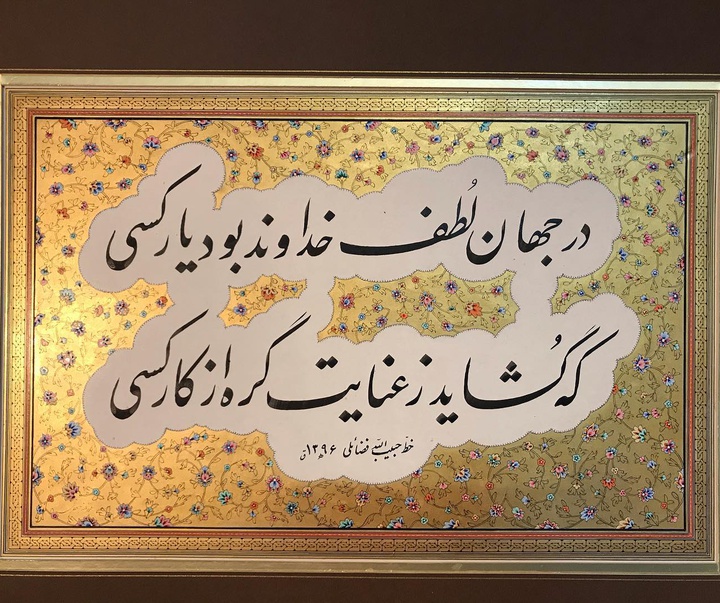 در جهان لُطف خداوند بود یار کسی
که گُشاید ز عنایت گره از کار کسی
خط حبیب الله فضائلی ۱۳۹۶ ه ق